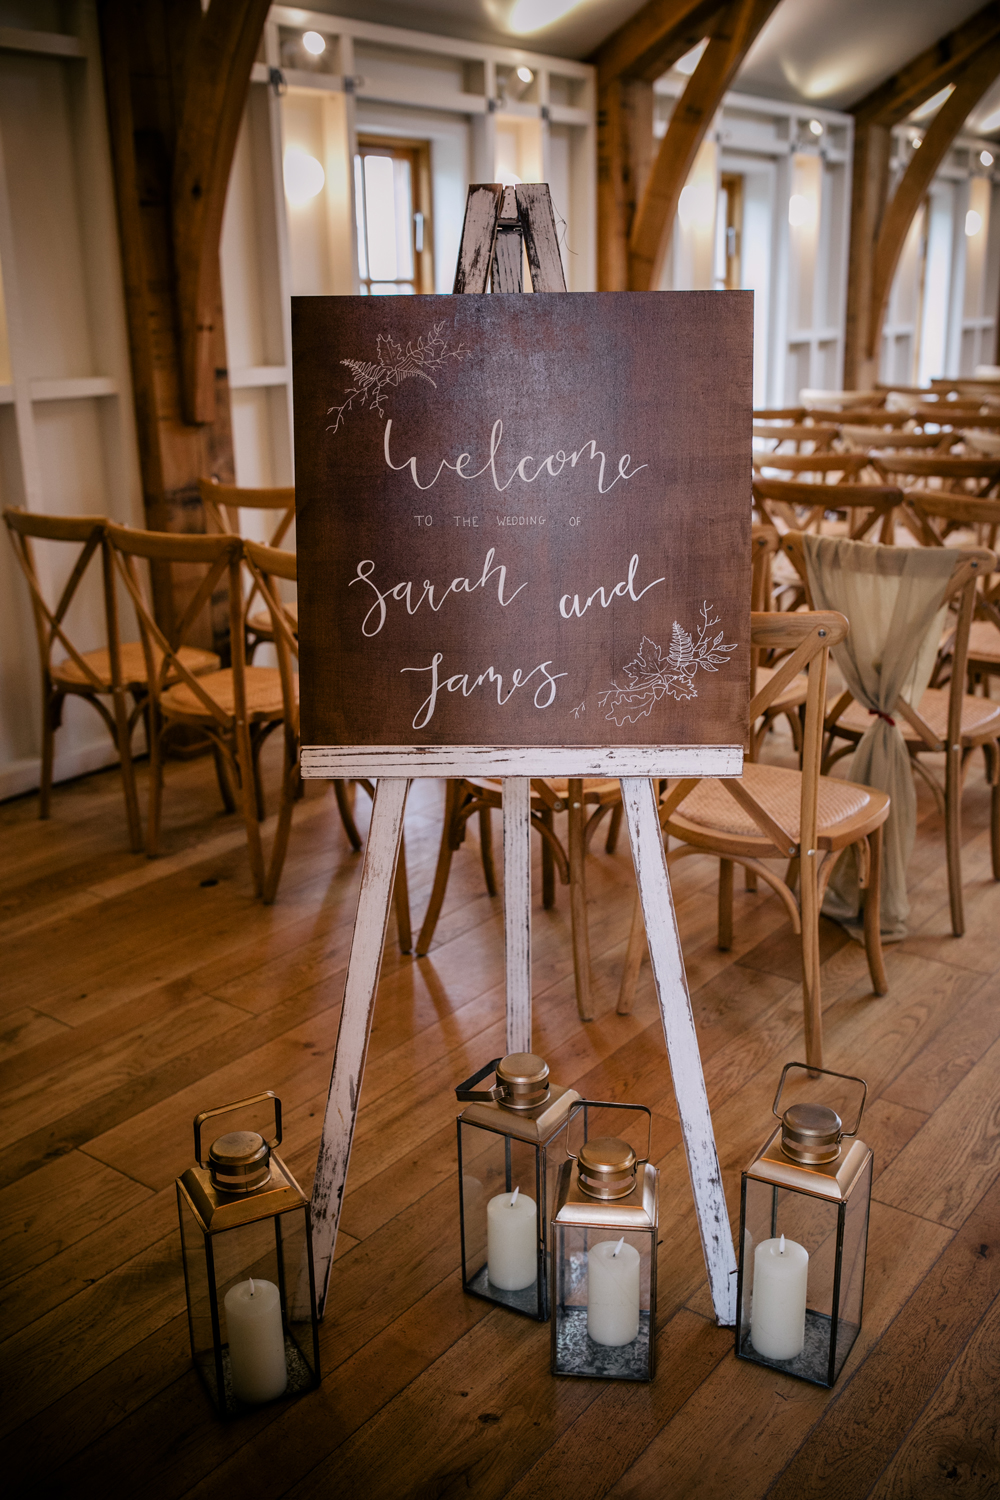 Welcome
TO THE WEDDING OF
Sarah and
James